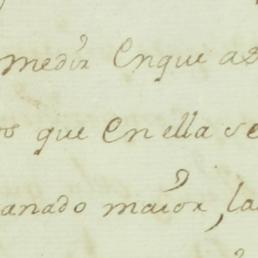 medir Enque a
que En ella se
anado maior, la